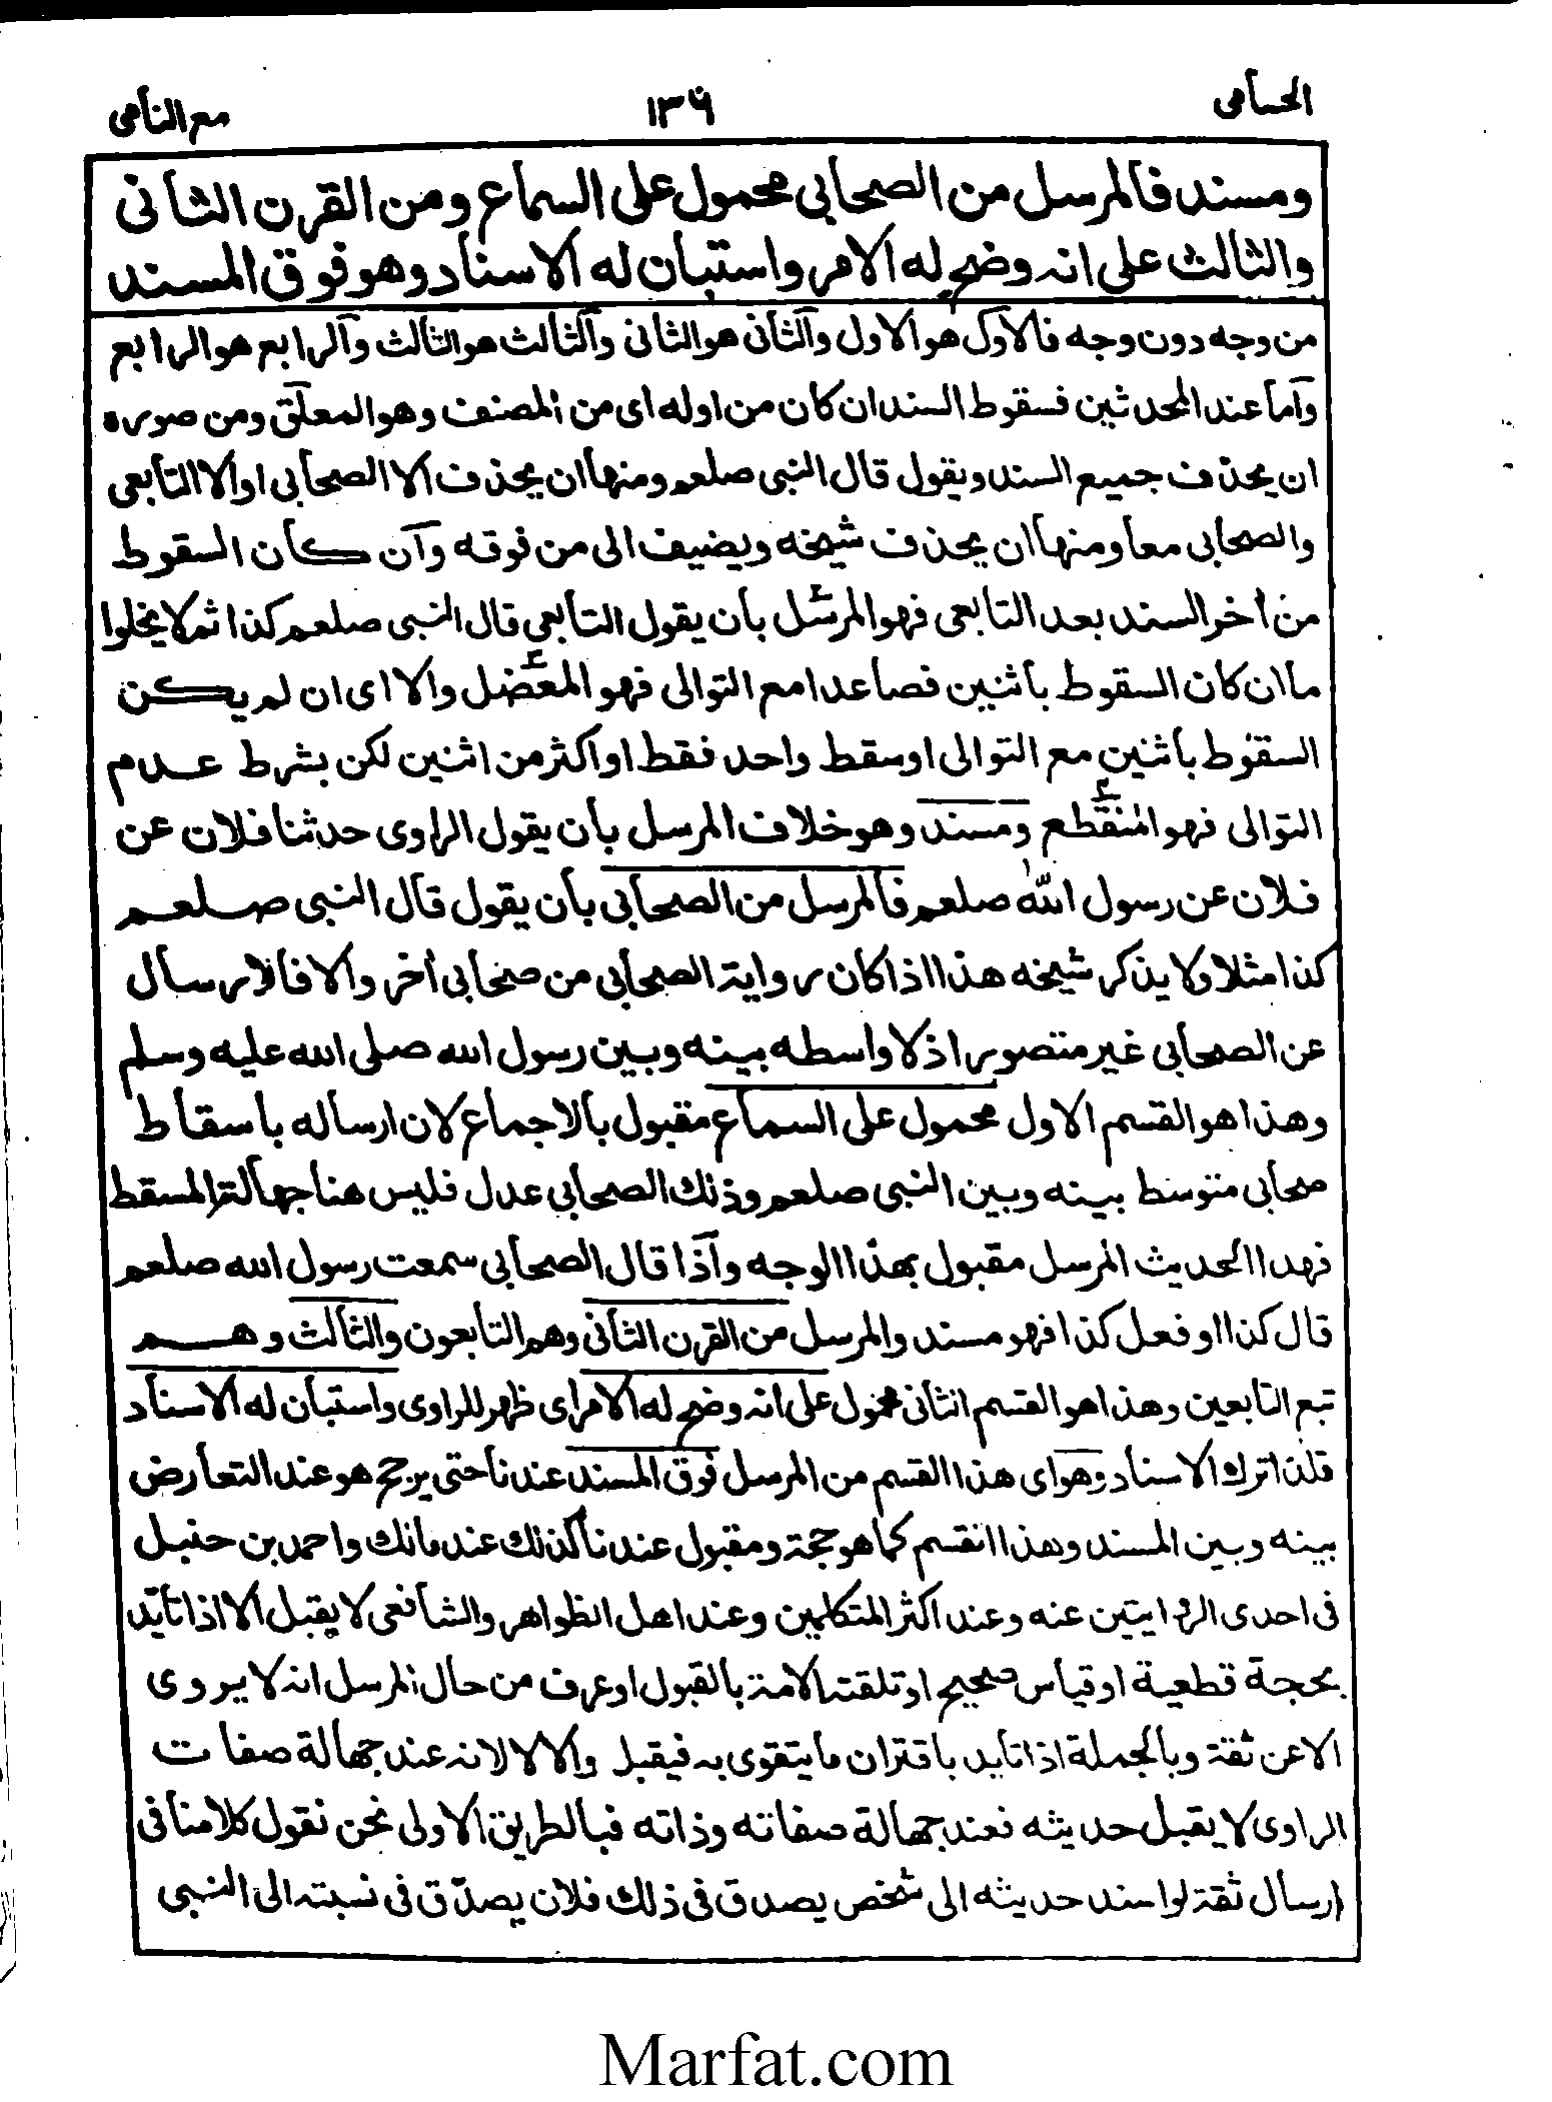 الحسامى
١٣٦
مع النامى
ومسند فالمرسل من الصحابي محمول على السماع ومن القرن الثانى
والثالث على انه وضح له الامر واستبان له الاسناد وهو فوق المسند
من وجه دون وجه فالاول هو الاول والثانى هو الثانى والثالث هو الثالث والرابع هو الرابع
وآما عند المحدثين فسقوط السند ان كان من اوله اى من المصنف وهو المعلق ومن صوره
ان يحذف جميع السند ويقول قال النبى صلعم ومنها ان يحذف الا الصحابى او الا التابعى
والصحابى معا ومنها ان يحذف شيخه ويضيف الى من فوقه وآن كان السقوط
من أخر السند بعد التابعى فهو المرسل بان يقول التابعى قال النبى صلعم كذا ثم لا يخلوا
ما ان كان السقوط باثنين فصاعدا مع التوالى فهو المعضل والا اى ان لم يكن
السقوط باثنين مع التوالى او سقط واحد فقط او اكثر من اثنين لكن بشرط عدم
التوالى فهو المنقطع ومسند وهو خلاف المرسل بان يقول الراوى حدثنا فلان عن
فلان عن رسول الله صلعم فالمرسل من الصحابى بان يقول قال النبى صلعم
كذا مثلا ولا يذكر شيخه هذا اذا كان رواية الصحابى من صحابى أخر والا فالارسال
عن الصحابى غير متصور اذ لا واسطه بينه وبين رسول الله صلى الله عليه وسلم
وهذا هو القسم الاول محمول على السماع مقبول بالاجماع لان ارساله باسقاط
صحابى متوسط بينه وبين النبى صلعم وذلك الصحابى عدل فليس هنا جهالة المسقط
فهدا الحديث المرسل مقبول بهذا الوجه وآذا قال الصحابى سمعت رسول الله صلعم
قال كذا او فعل كذا فهو مسند والمرسل من القرن الثانى وهم التابعون والثالث وهم
تبع التابعين وهذا هو القسم الثانى محمول على انه وضح له الامر اى ظهر للراوى واستبان له الاسناد
فلذا ترك الاسناد وهو اى هذا القسم من المرسل فوق المسند عندنا حتى يرجح هو عند التعارض
بينه وبين المسند وهذا القسم كما هو حجة ومقبول عندنا كذلك عند مالك واحمد بن حنبل
فى احدى الروايتين عنه وعند اكثر المتكلمين وعند اهل الظواهر والشافعى لا يقبل الا اذا تأيد
بحجة قطعية او قياس صحيح او تلقته الامة بالقبول او عرف من حال المرسل انه لا يروى
الا عن ثقة وبالجملة اذا تايد باقتران ما يتقوى به فيقبل والا لا لانه عند جهالة صفات
الراوى لا يقبل حديثه فعند جهالة صفاته وذاته فبالطريق الاولى نحن نقول كلامنا فى
ارسال ثقة لو اسند حديثه الى شخص يصدق فى ذلك فلان يصدق فى نسبته الى النبى
Marfat.com